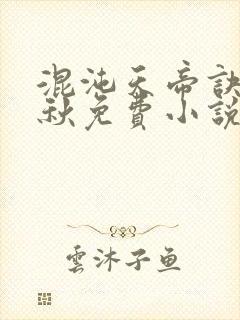 混沌天帝訣
秋免費小說
雲沐子鱼